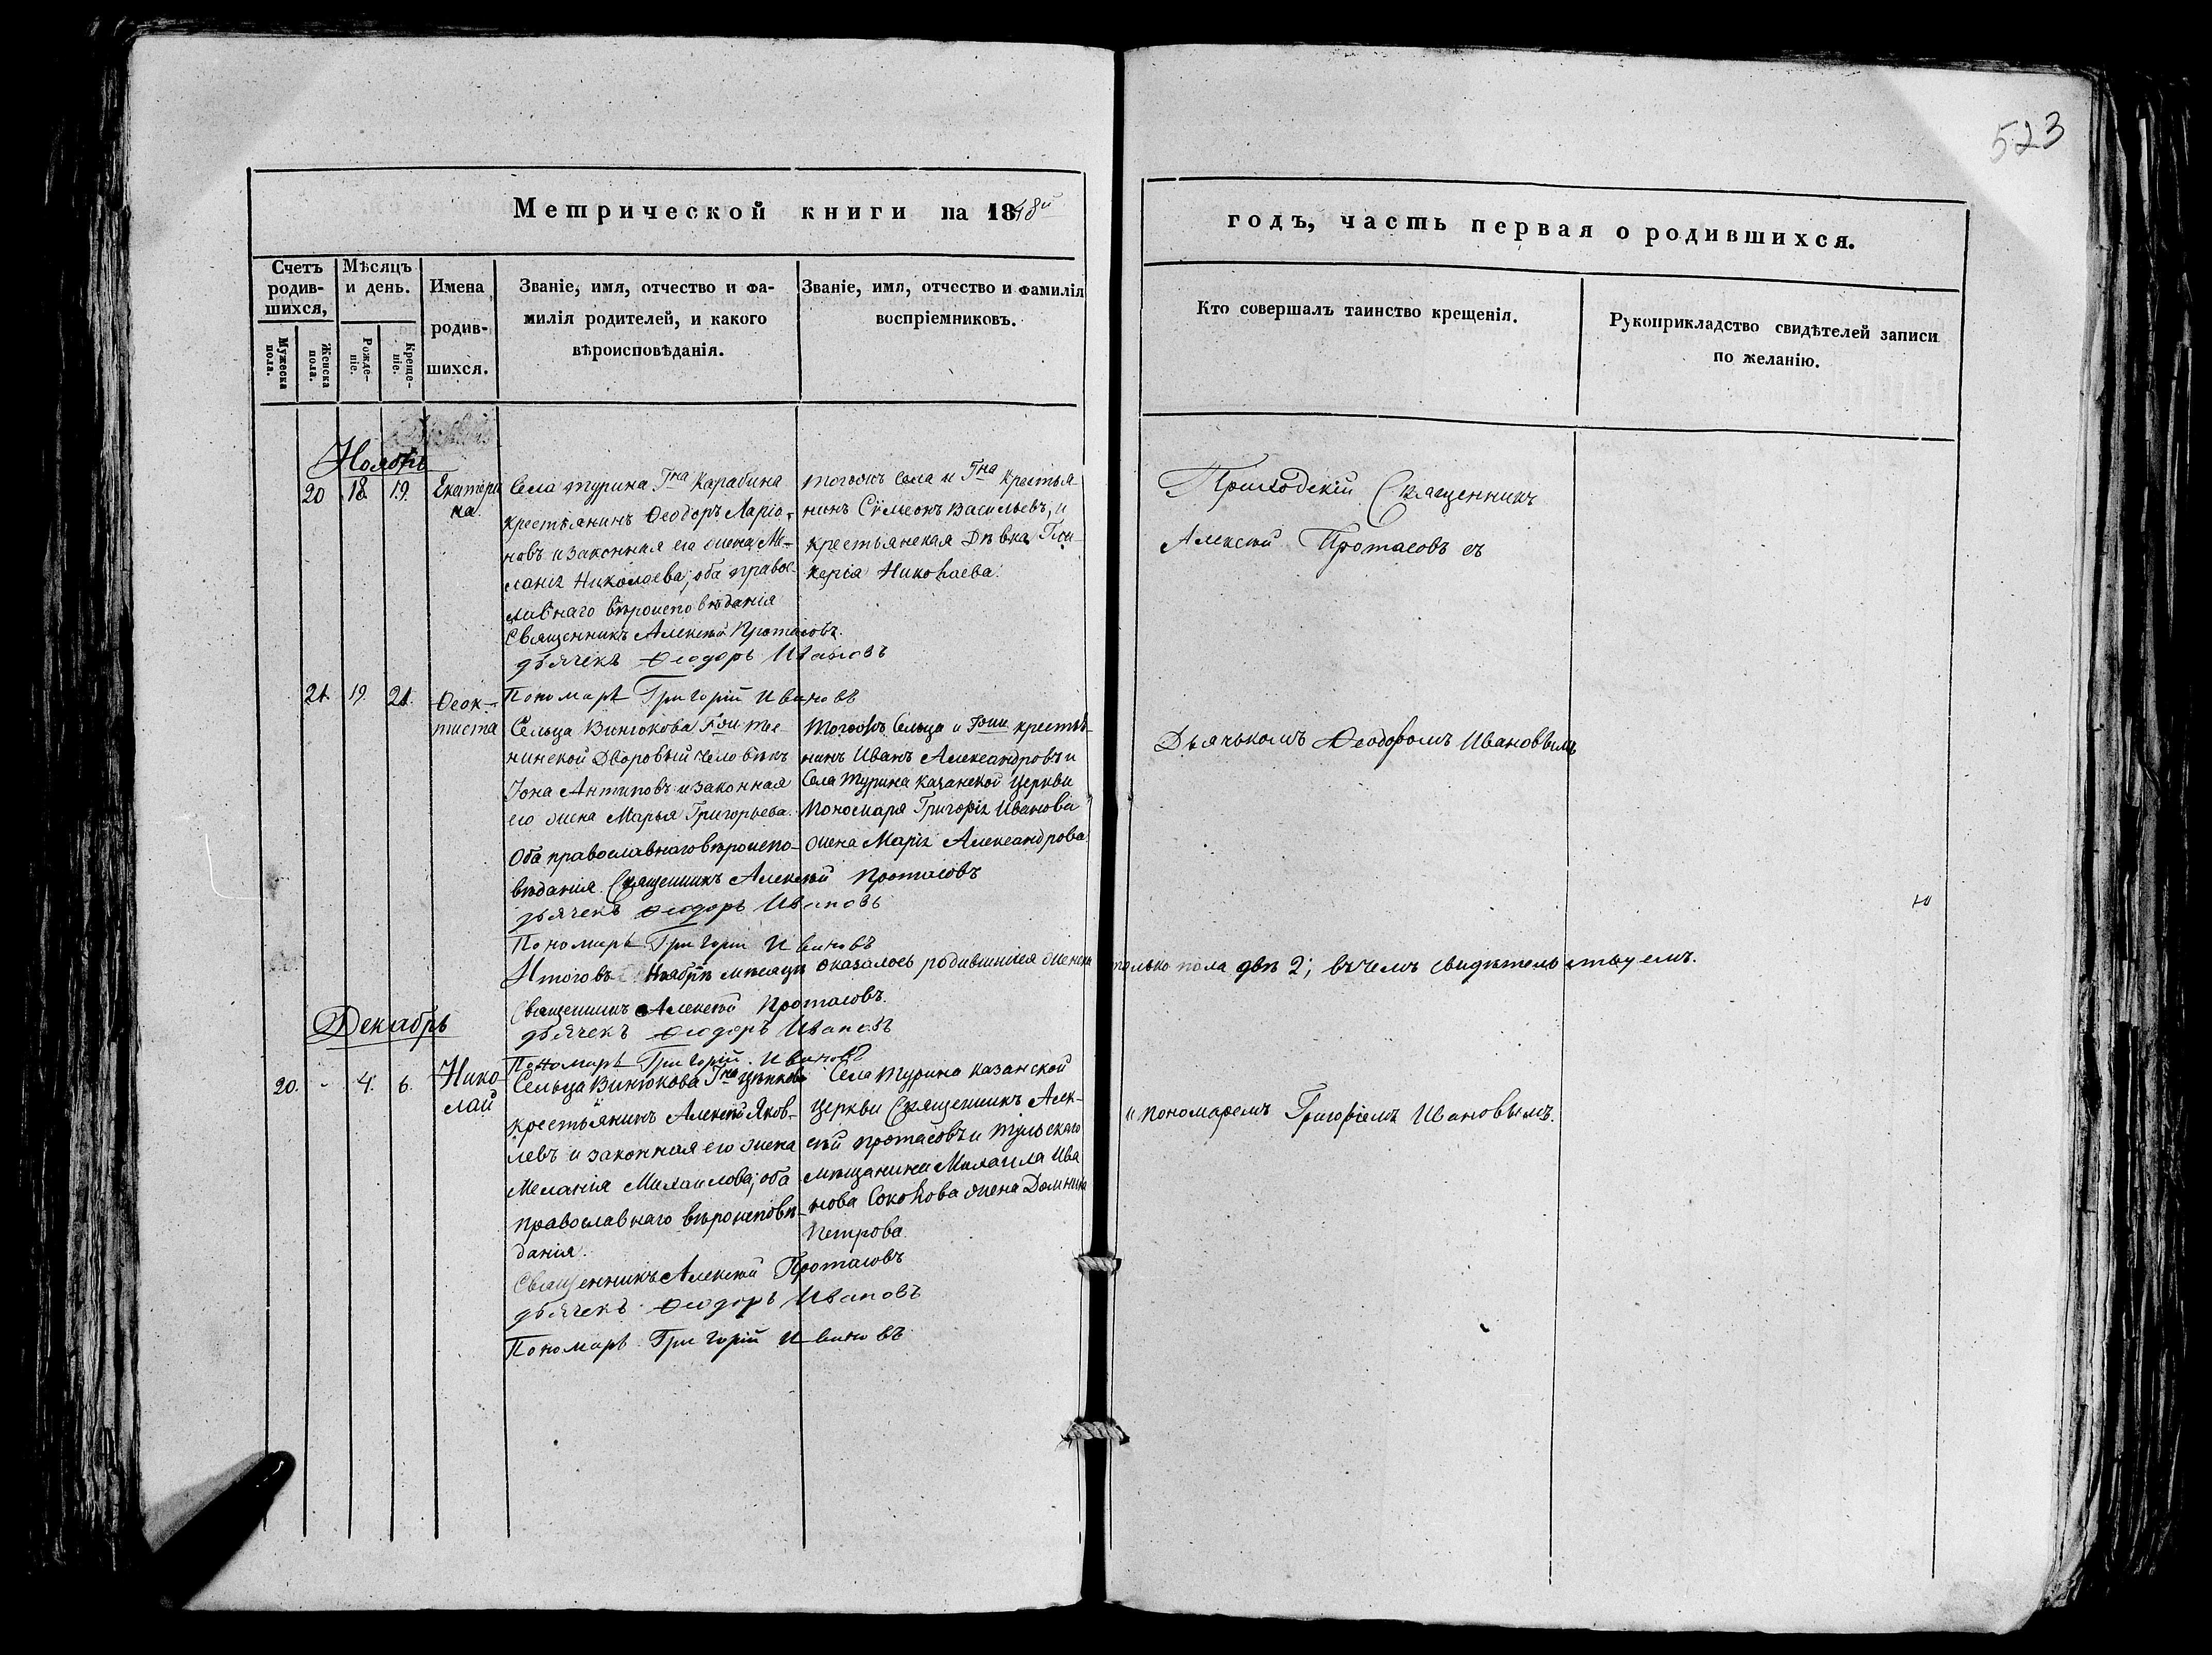 523
Метрической книги на 1848й
годъ, часть первая о родившихся.
Счетъ родив-
шихся,
Мужеска пола.
Женска пола.
Мѣсяцъ
и день.
Рожде-
ніе.
Креще-
ніе.
Имена
родив-
шихся.
Званіе, имя, отчество и фа-
милія родителей, и какого
вѣроисповѣданія.
Званіе, имя, отчество и фамилія
воспріемниковъ.
Кто совершалъ таинство крещенія.
Рукоприкладство свидѣтелей записи
по желанію.
Ноябрь
20 18 19. Екатери
на.
Села турина Гна Карабина
крестьянинъ Ѳеодоръ Ларіо-
новъ и законная его жена Ме-
ланія Николаева; оба правос-
лавнаго вѣроисповѣданія
Священникъ Алексѣй Протасовъ.
дьячекъ Ѳеодоръ Ивановъ
Пономарь Григорій Ивановъ
тогожъ Села и Гна крестья
нинъ Сѵмеонъ Васильевъ, и
крестьянская Дѣвка Гли-
керія Николаева.
Приходскій Священникъ
Алексѣй Протасовъ съ
21. 19. 21. Ѳеок-
тиста
Сельца Винюкова
Дворовый человѣкъ
Іона Антиповъ и законная
его жена Марья Григорьева.
Оба православнаго вѣроиспо-
вѣданія. Священникъ Алексѣй Протасовъ
дьячекъ Ѳеодоръ Ивановъ
Пономарь Григорій Ивановъ
тогожъ Сельца и Гжи крестья-
нинъ Иванъ Александровъ и
Села Турина Казанской церкви
Пономаря Григорія Иванова
жена Марія Александрова.
Дьячькомъ Ѳеодоромъ Ивановымъ
Итого въ Ноябрѣ мѣсяцѣ оказалось родившихся женска только пола двѣ 2; въ чемъ свидѣтельствуемъ.
Священникъ Алексѣй Протасовъ.
дьячекъ Ѳеодоръ Ивановъ
Пономарь Григорій Ивановъ
Декабрь
20. - 4. 6. Нико
лай
Сельца Винюкова Гна
крестьянинъ Алексѣй Яков-
левъ и законная его жена
Меланія Михаилова; оба
православнаго вѣроисповѣ-
данія.
Священникъ Алексѣй Протасовъ
дьячекъ Ѳеодоръ Ивановъ
Пономарь Григорій Ивановъ
Села Турина казанской
церкви Священникъ Алек-
сѣй Протасовъ и тульскаго
мѣщанина Михаила Ива
нова Соколова жена Домника
Петрова.
и пономаремъ Григоріемъ Ивановымъ.